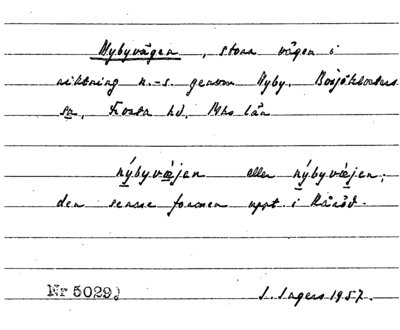 Nybyvägen, stora vägen i
riktning n.-s. genom Nyby. Bosjökloster
sn, Frosta hd, Mhs län
nýbyvæjen eller nýbyvæ̀jen;
den senare formen uppt. i Hänöd.
Nr 5029.) S. Ingers 1957.